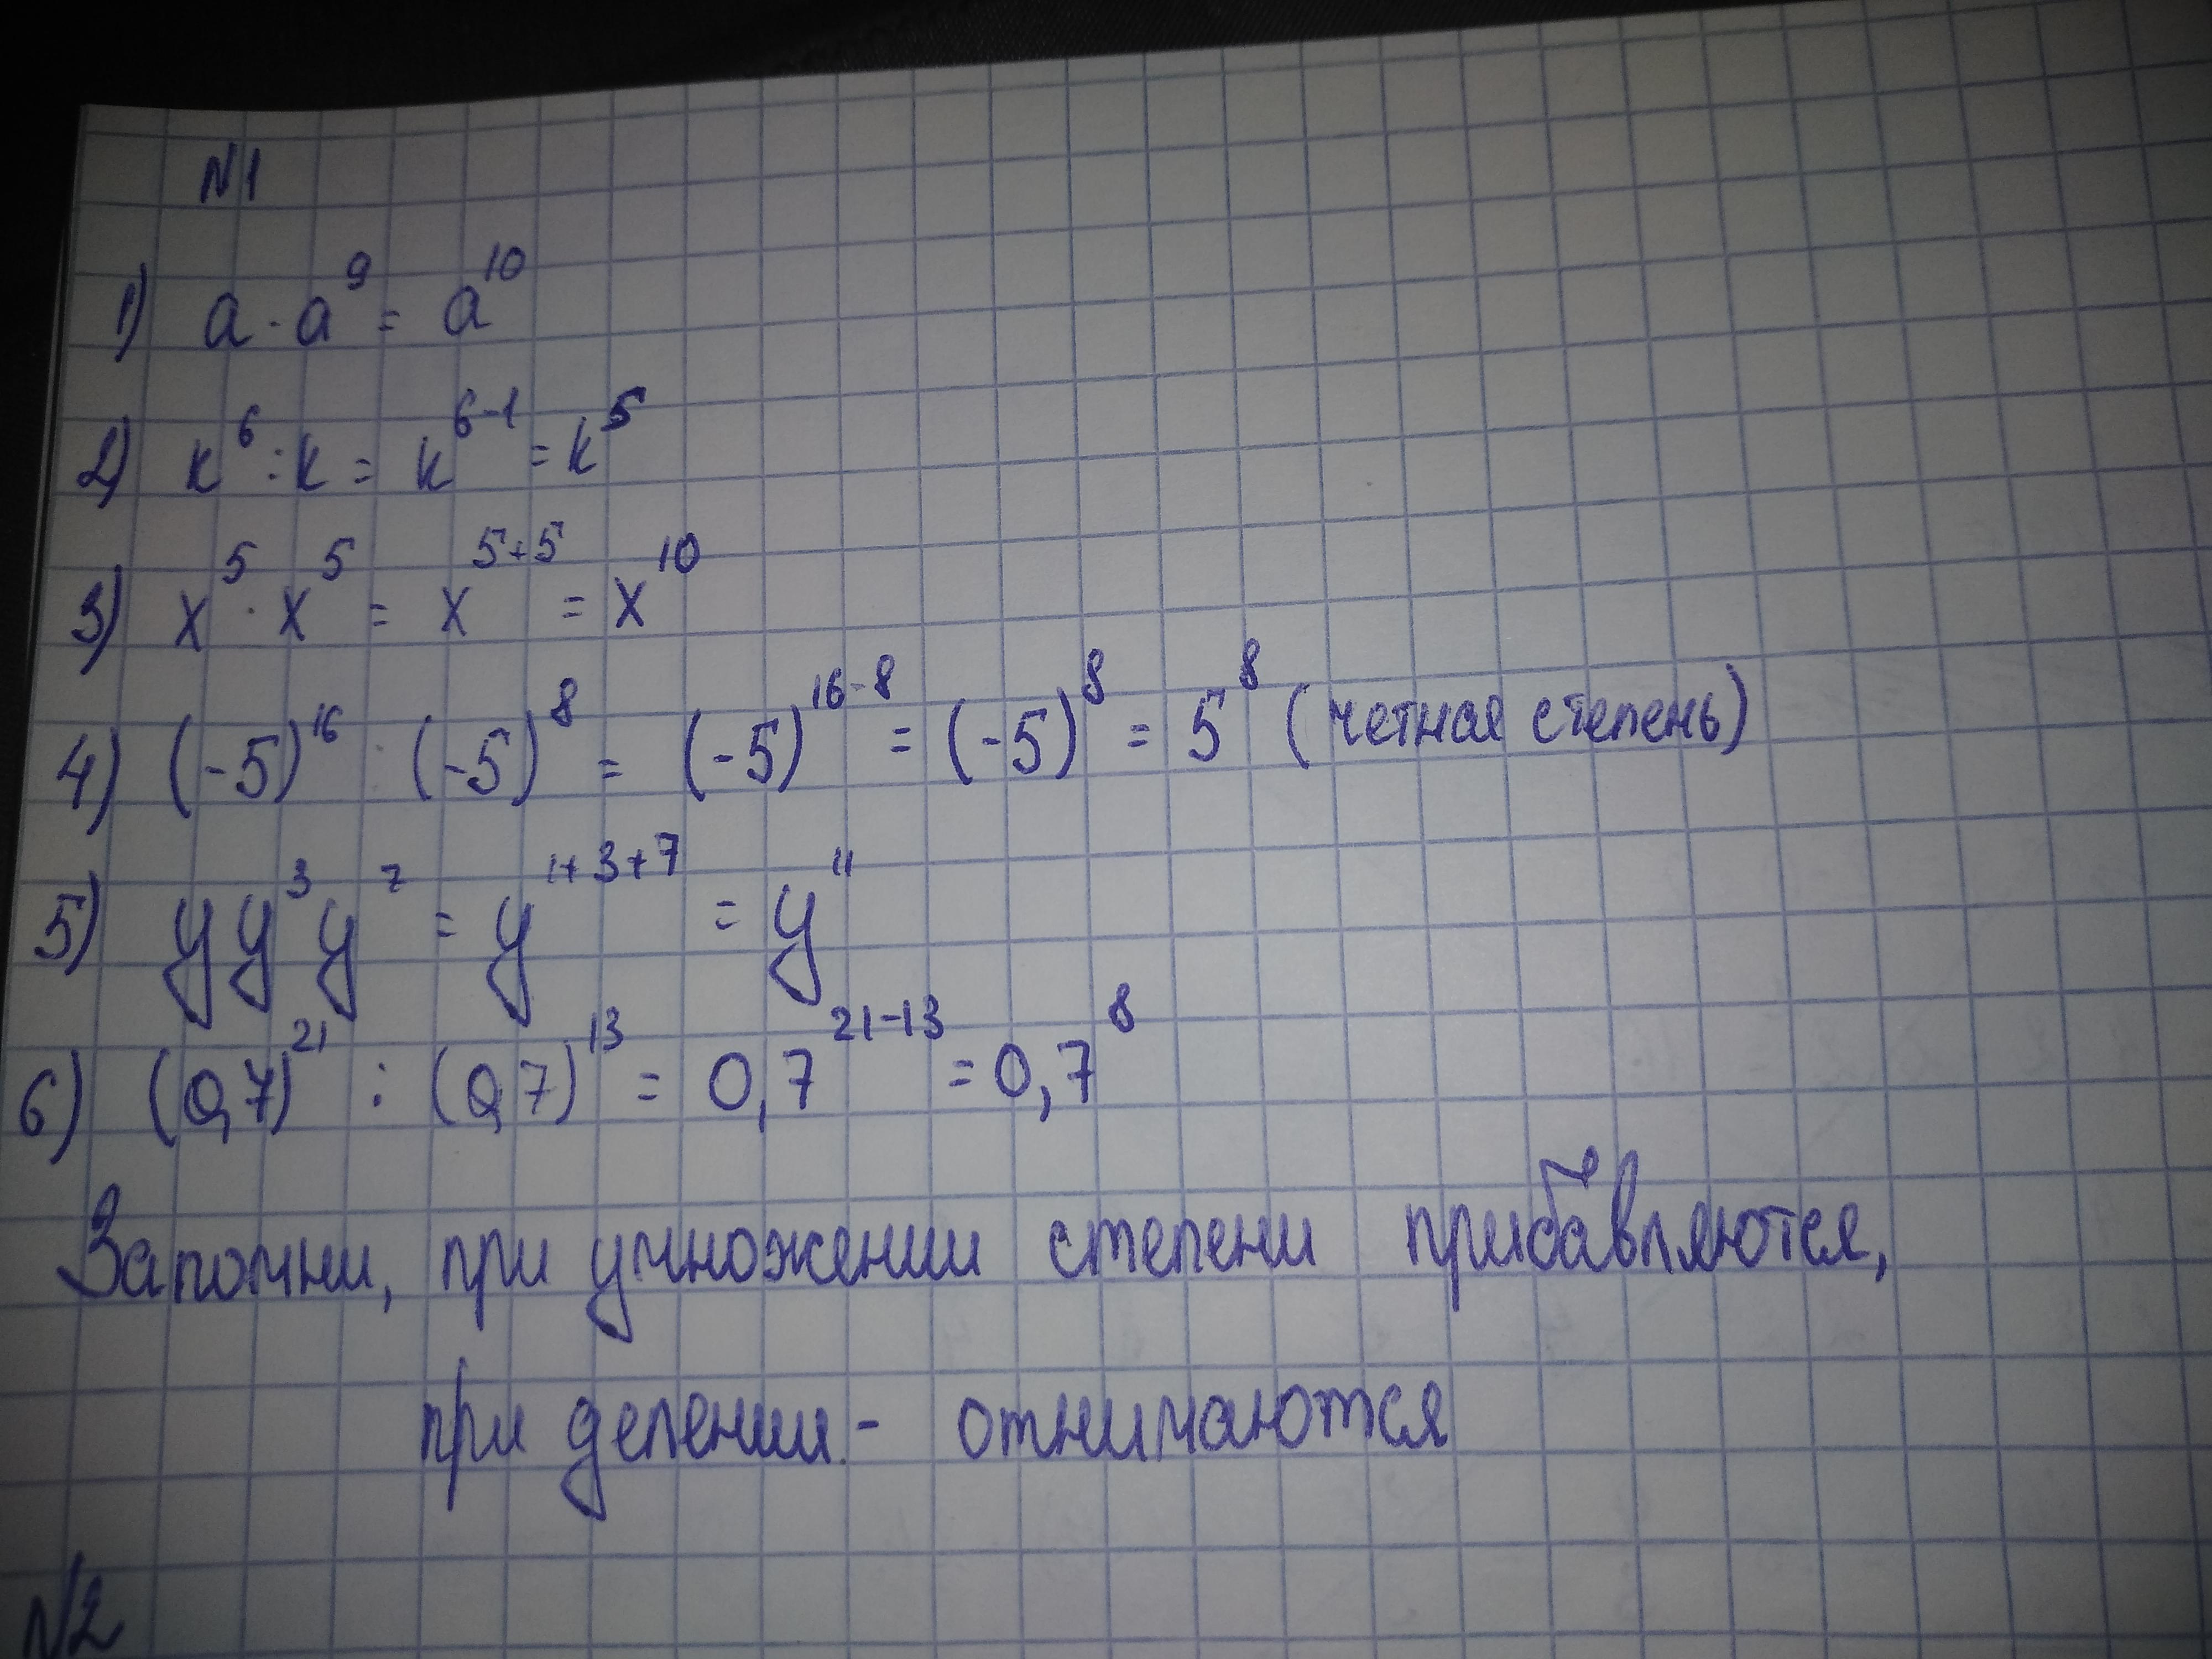 N1
1) a · a⁹ = a¹⁰
2) k⁶ : k = k⁶⁻¹ = k⁵
3) x⁵ · x⁵ = x⁵⁺⁵ = x¹⁰
4) (-5)¹⁶ : (-5)⁸ = (-5)¹⁶⁻⁸ = (-5)⁸ = 5⁸ (четная степень)
5) y y³ y⁷ = y¹⁺³⁺⁷ = y¹¹
6) (0,7)²¹ : (0,7)¹³ = 0,7²¹⁻¹³ = 0,7⁸
Запомни, при умножении степени прибавляются,
при делении - отнимаются
N2